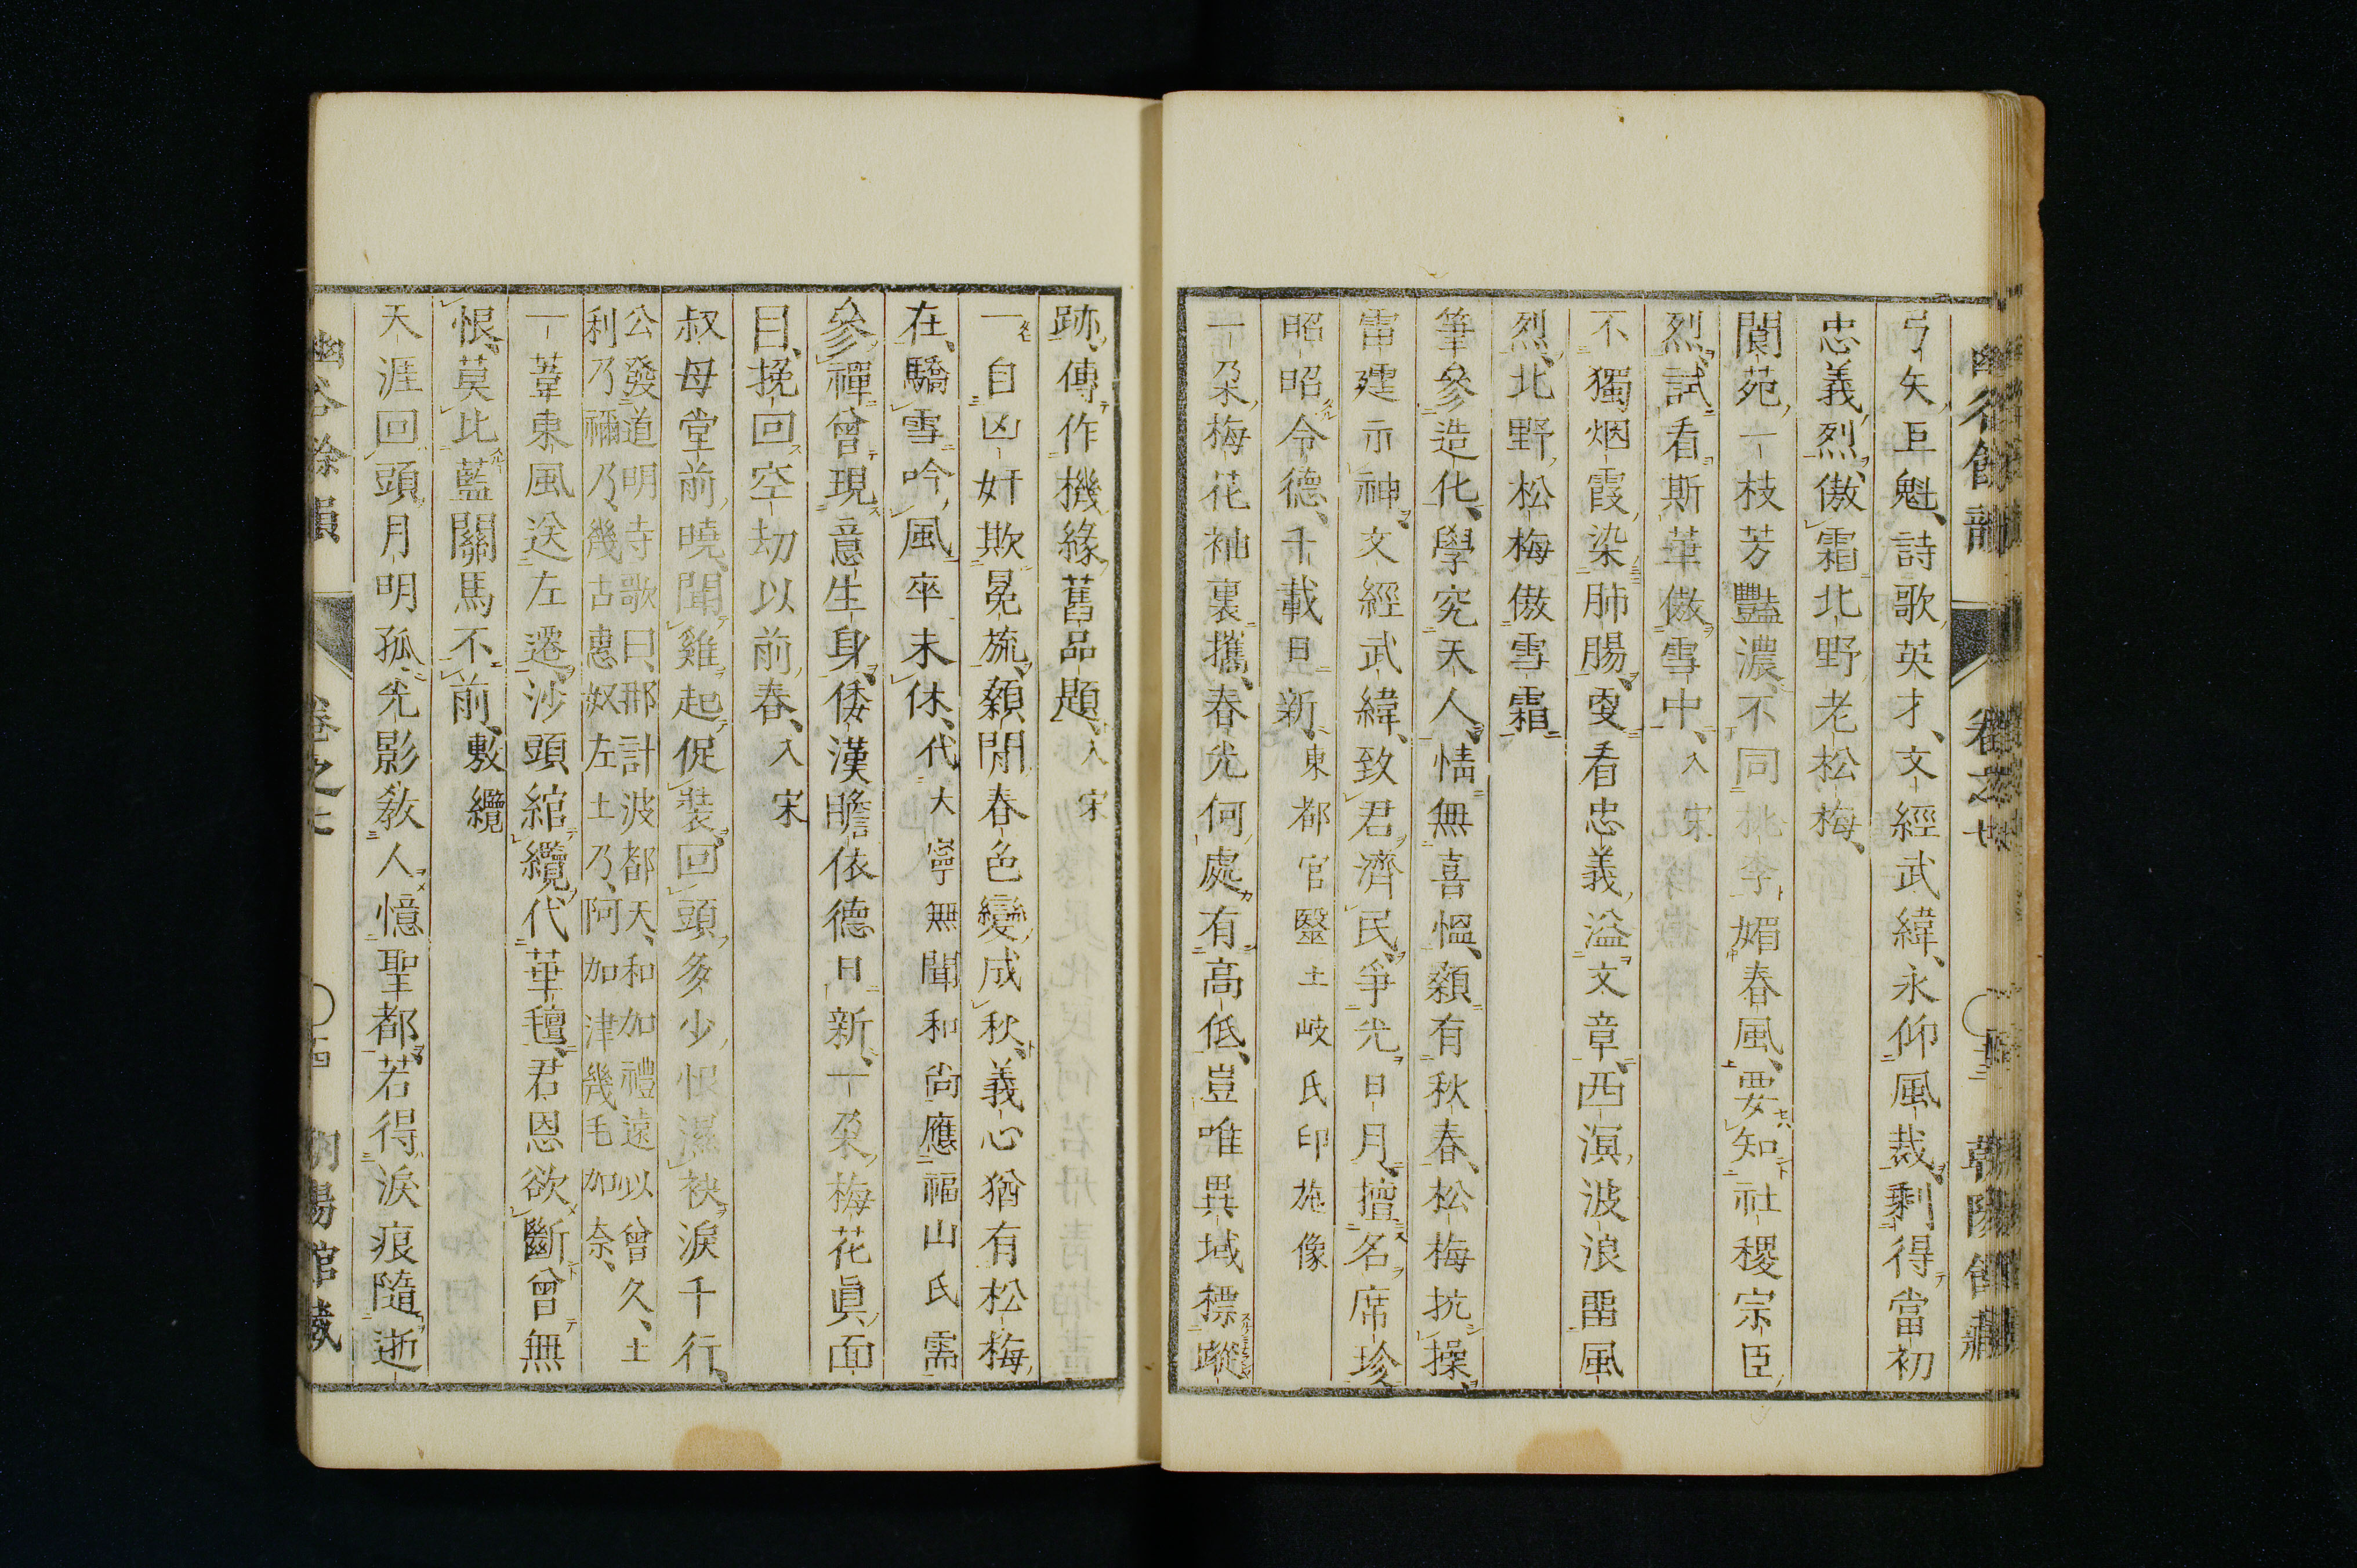 弓矢巨魁、詩歌英才、文經武緯、永仰風裁、剩得當初
忠義烈、傲霜北野老松梅、
閬苑一枝芳豔濃、不同桃李媚春風、要知社稷宗臣
烈、試看斯華傲雪中、入宋
不獨烟霞染肺腸、更看忠義溢文章、西溟波浪雷風
烈、北野松梅傲雪霜
筆參造化、學究天人、情無喜慍、纇有秋春、松梅抗操、
雷霆示神、文經武緯、致君濟民、爭光日月、擅名席珍
昭昭令德、千載日新、東都官醫土岐氏印施像
一朶梅花袖裏攜、春光何處有高低、豈唯異域標蹤
跡、傳作機緣舊品題、入宋
一自凶奸欺冕旒、纇閒春色變成秋、義心猶有松梅
在、驕雪吟風卒未休、代大寧無聞和尚應福山氏需
參禪曾現意生身、倭漢瞻依德日新、一朶梅花眞面
目、挽回空劫以前春、入宋
叔母堂前曉聞雞起促裝、回頭多少恨濕袂淚千行、
公發道明寺歌曰、那計波都天、和加禮遠以曾久、土
利乃禰乃、幾古惠奴左土乃、阿加津幾毛加奈、
一葦東風送左遷、沙頭綰纜代華氈、君恩欲斷曾無
恨、莫比藍關馬不前、敷纜
天涯回頭月明孤、光影教人憶聖都、若得淚痕隨逝
卷之七